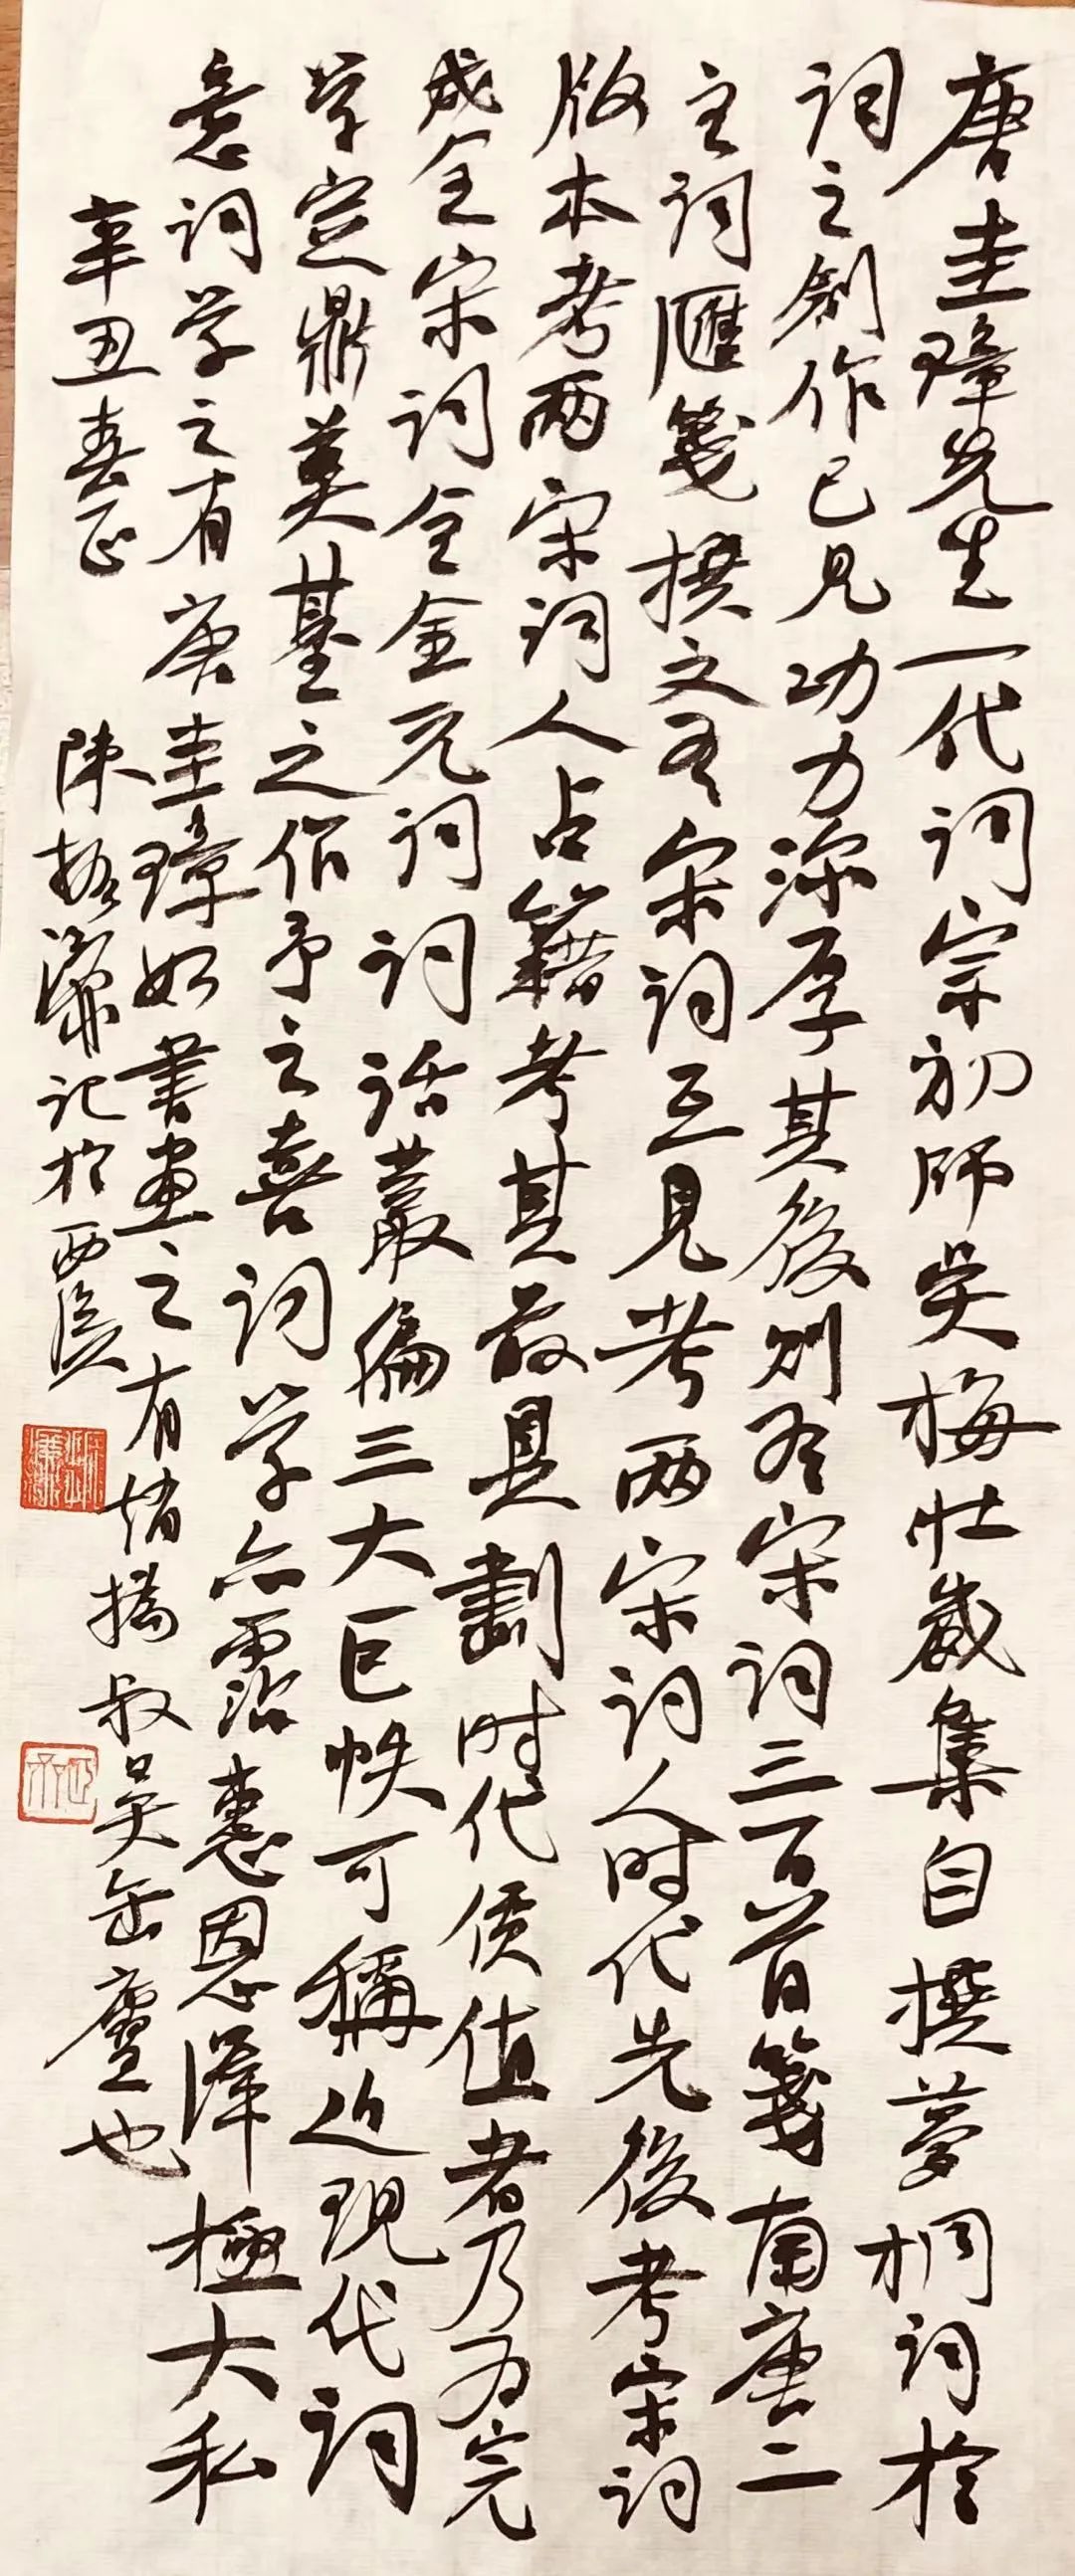 唐圭璋先生一代词宗初师吴梅壮歲集自撰夢桐词於
词之创作已見功力深厚其後则有宋词三百首箋南唐二
主词匯箋撰文有宋词互見考两宋词人时代先後考宋词
版本考两宋词人占籍考其最具劃时代價值者乃为完
成全宋词全金元词词话叢编三大巨帙可稱近现代词
学定鼎奠基之作予之喜词学亦霑惠恩澤極大私
意词学之有唐圭璋如書画之有趙撝叔吴缶廬也
辛丑春正
陳 記於西溪